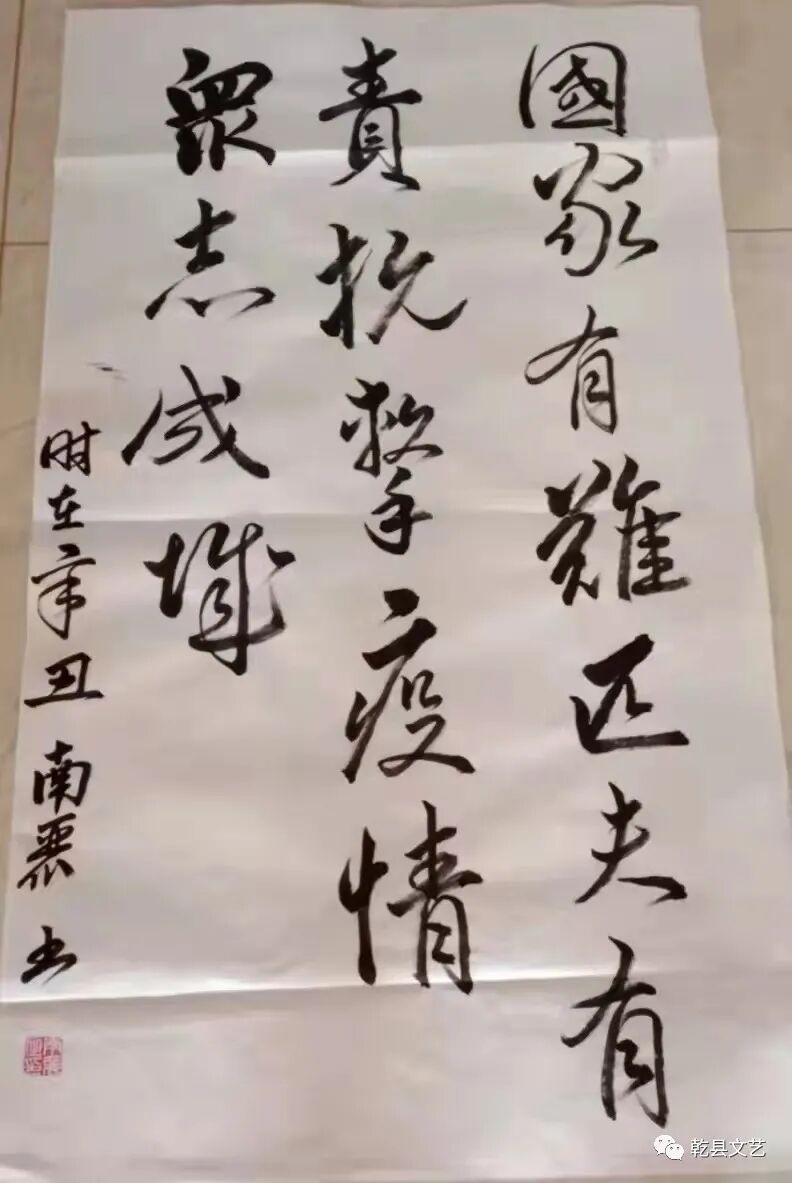 國家有難匹夫有
責抗擊疫情
衆志成城
时在辛丑 南 书
乾县文艺